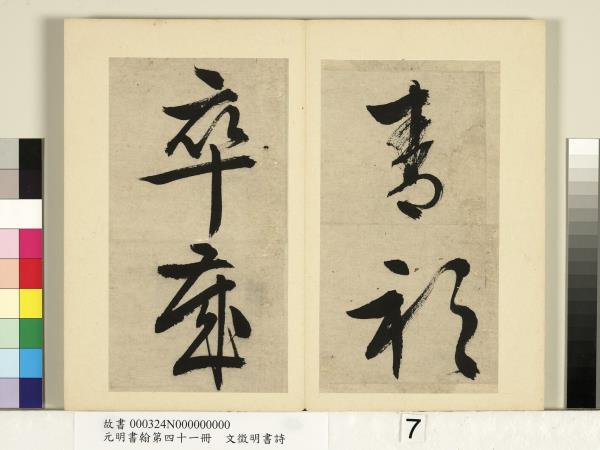 青衫
卒歲
故書 000324N000000000
元明書翰第四十一冊 文徵明書詩
7